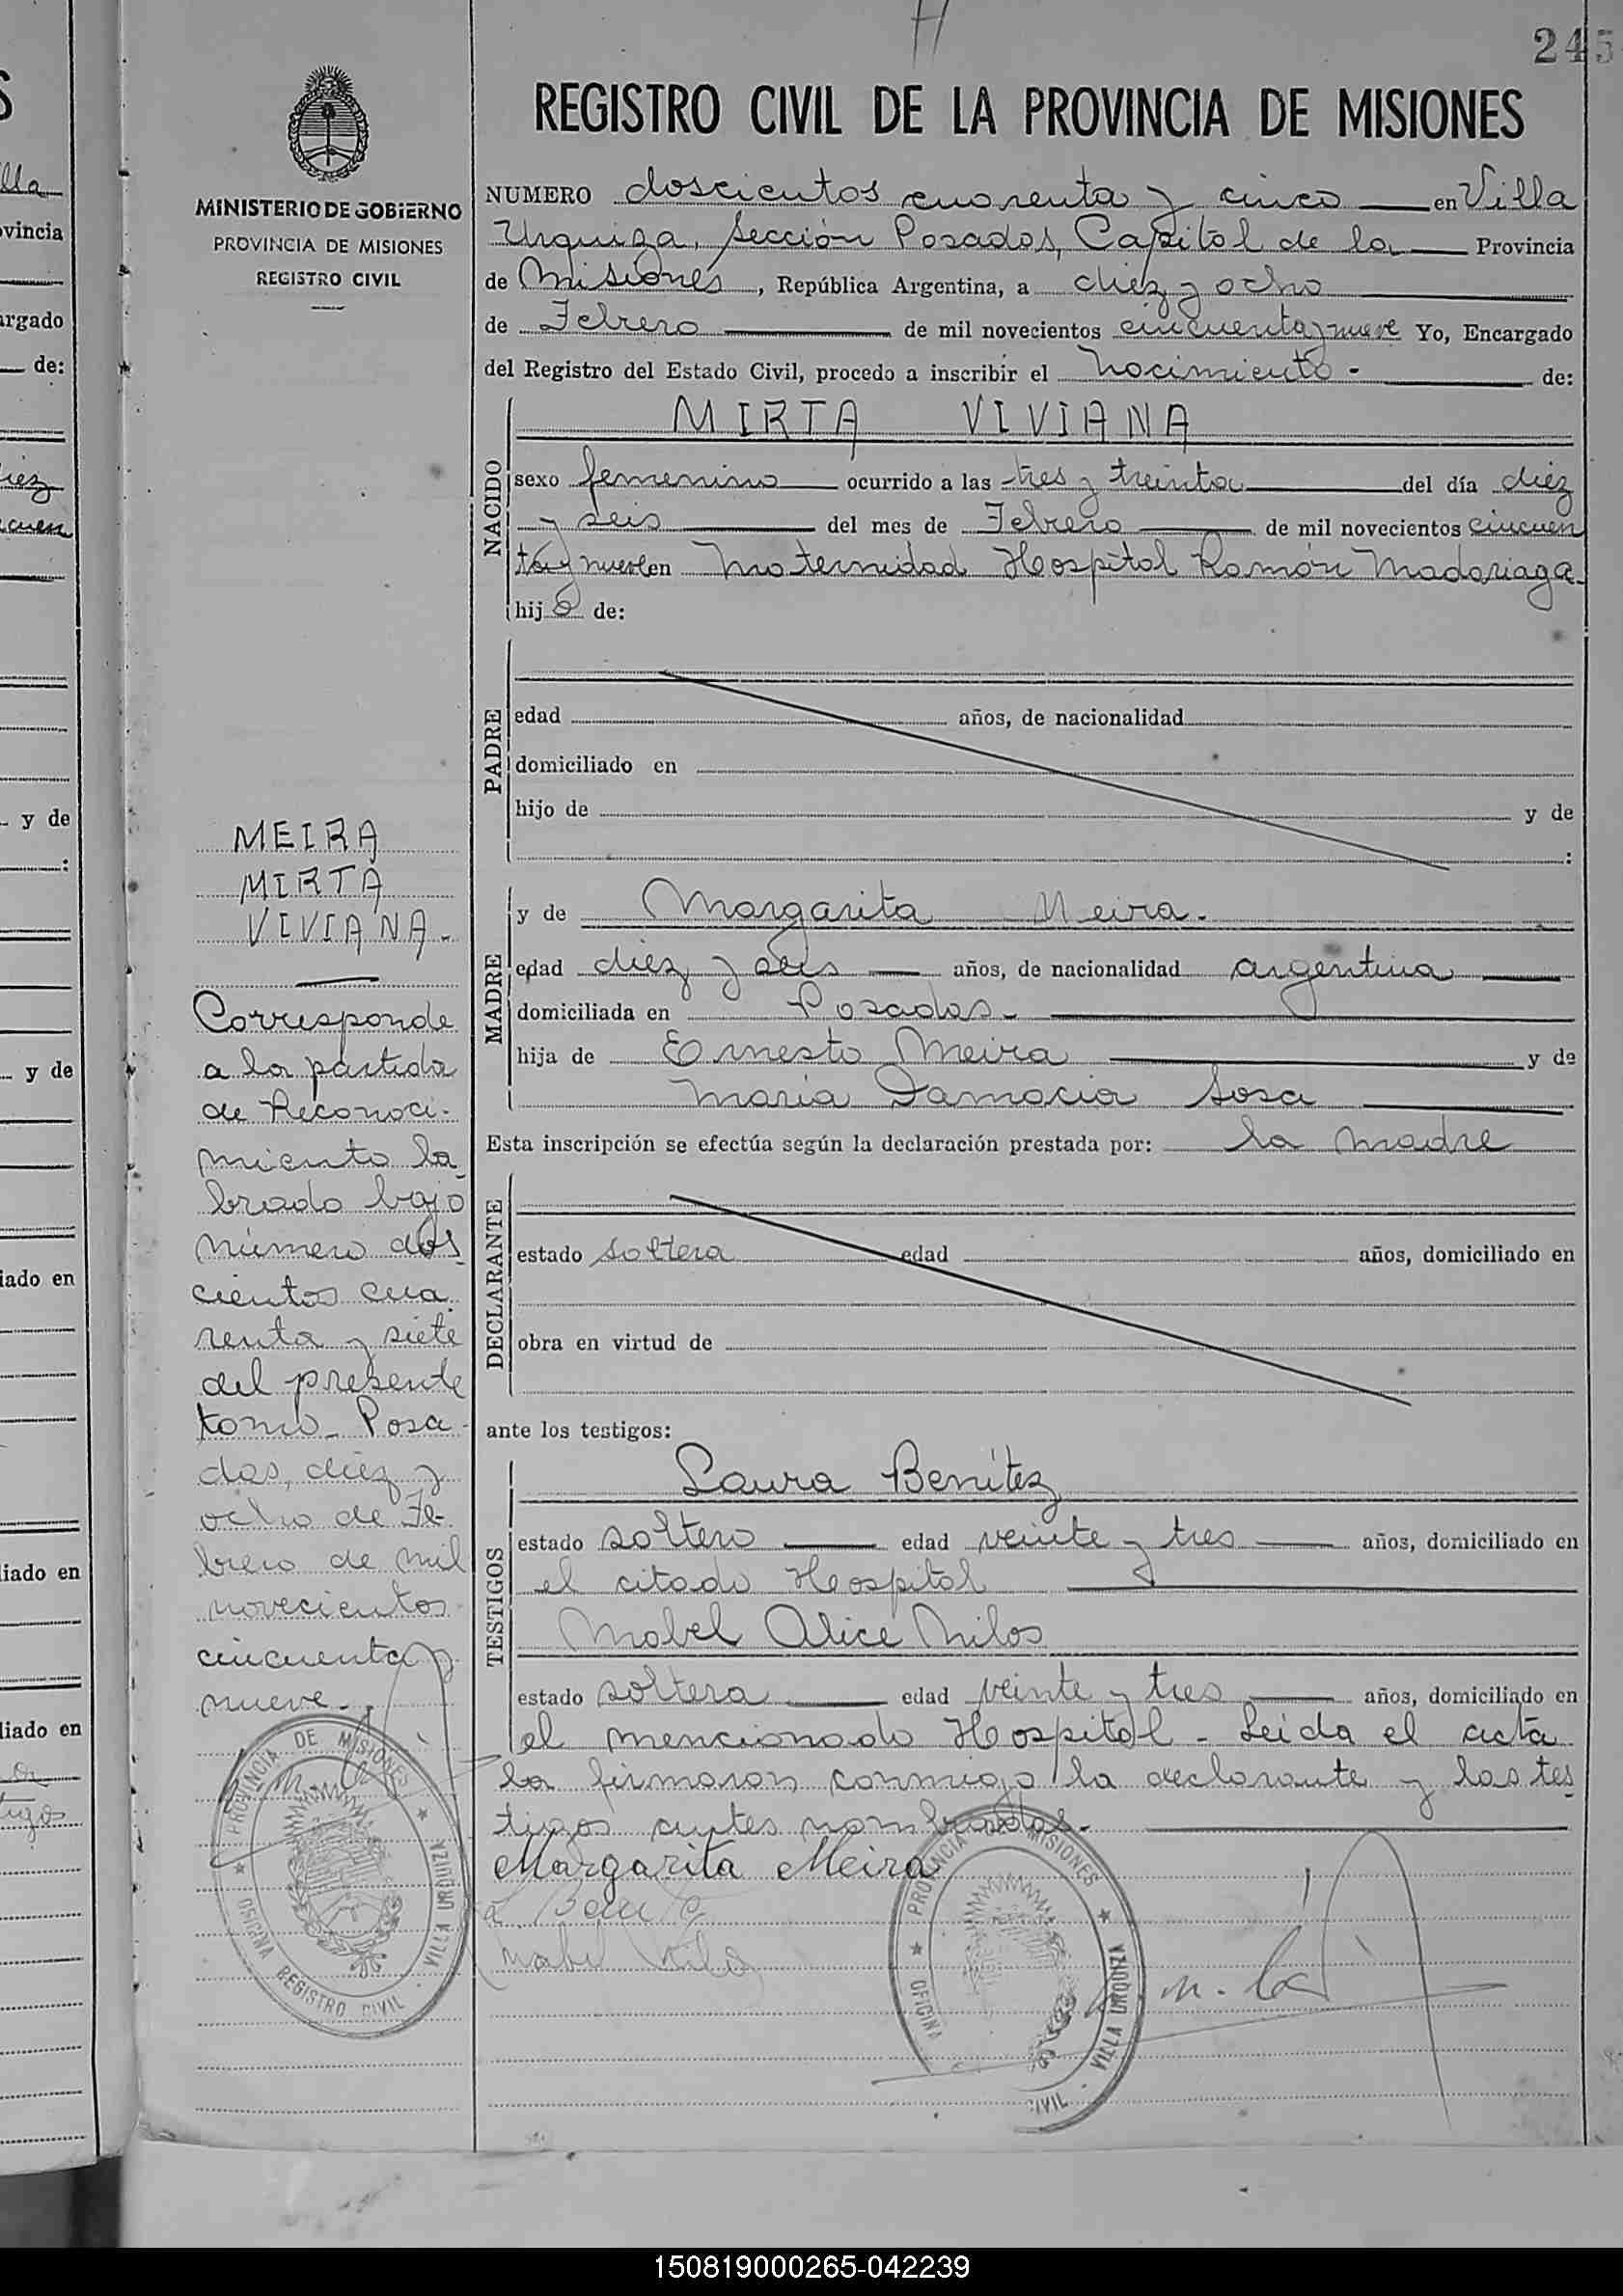 245
REGISTRO CIVIL DE LA PROVINCIA DE MISIONES
MINISTERIO DE GOBIERNO
PROVINCIA DE MISIONES
REGISTRO CIVIL
NUMERO doscientos cuarenta y cinco en Villa
Urquiza, Sección Posadas, Capital de la Provincia
de Misiones, República Argentina, a diez y ocho
de Febrero de mil novecientos cincuenta y nueve Yo, Encargado
del Registro del Estado Civil, procedo a inscribir el Nacimiento - de:
NACIDO
MIRTA VIVIANA
sexo femenino ocurrido a las tres y treinta del día diez
y seis del mes de Febrero de mil novecientos cincuen
ta y nueve en Maternidad Hospital Ramón Madariaga
hij de:
PADRE
edad años, de nacionalidad
domiciliado en
hijo de y de
:
MADRE
y de Margarita Meira.
edad diez y seis años, de nacionalidad argentina
domiciliada en Posadas.
hija de Ernesto Meira y de
María Damacia Sosa
Esta inscripción se efectúa según la declaración prestada por: la madre
DECLARANTE
estado soltera edad años, domiciliado en
obra en virtud de
ante los testigos:
TESTIGOS
Laura Benítez
estado soltero edad veinte y tres años, domiciliado en
el citado Hospital
Mabel Alice Milos
estado soltera edad veinte y tres años, domiciliado en
el mencionado Hospital - Leida el acta
la firmaron conmigo la declarante y los tes
tigos antes nombrados.
Margarita Meira
MEIRA
MIRTA
VIVIANA.
Corresponde
a la partida
de Reconoci-
miento la
brada bajo
número dos
cientos cua
renta y siete
del presente
tomo. Posa-
das, diez y
ocho de Fe-
brero de mil
novecientos
cincuenta y
nueve.
PROVINCIA DE MISIONES
OFICINA REGISTRO CIVIL - VILLA URQUIZA
PROVINCIA DE MISIONES
OFICINA CIVIL - VILLA URQUIZA
lla
vincia
argado
de:
iez
cuen
y de
:
y de
iado en
liado en
liado en
tigos
150819000265-042239